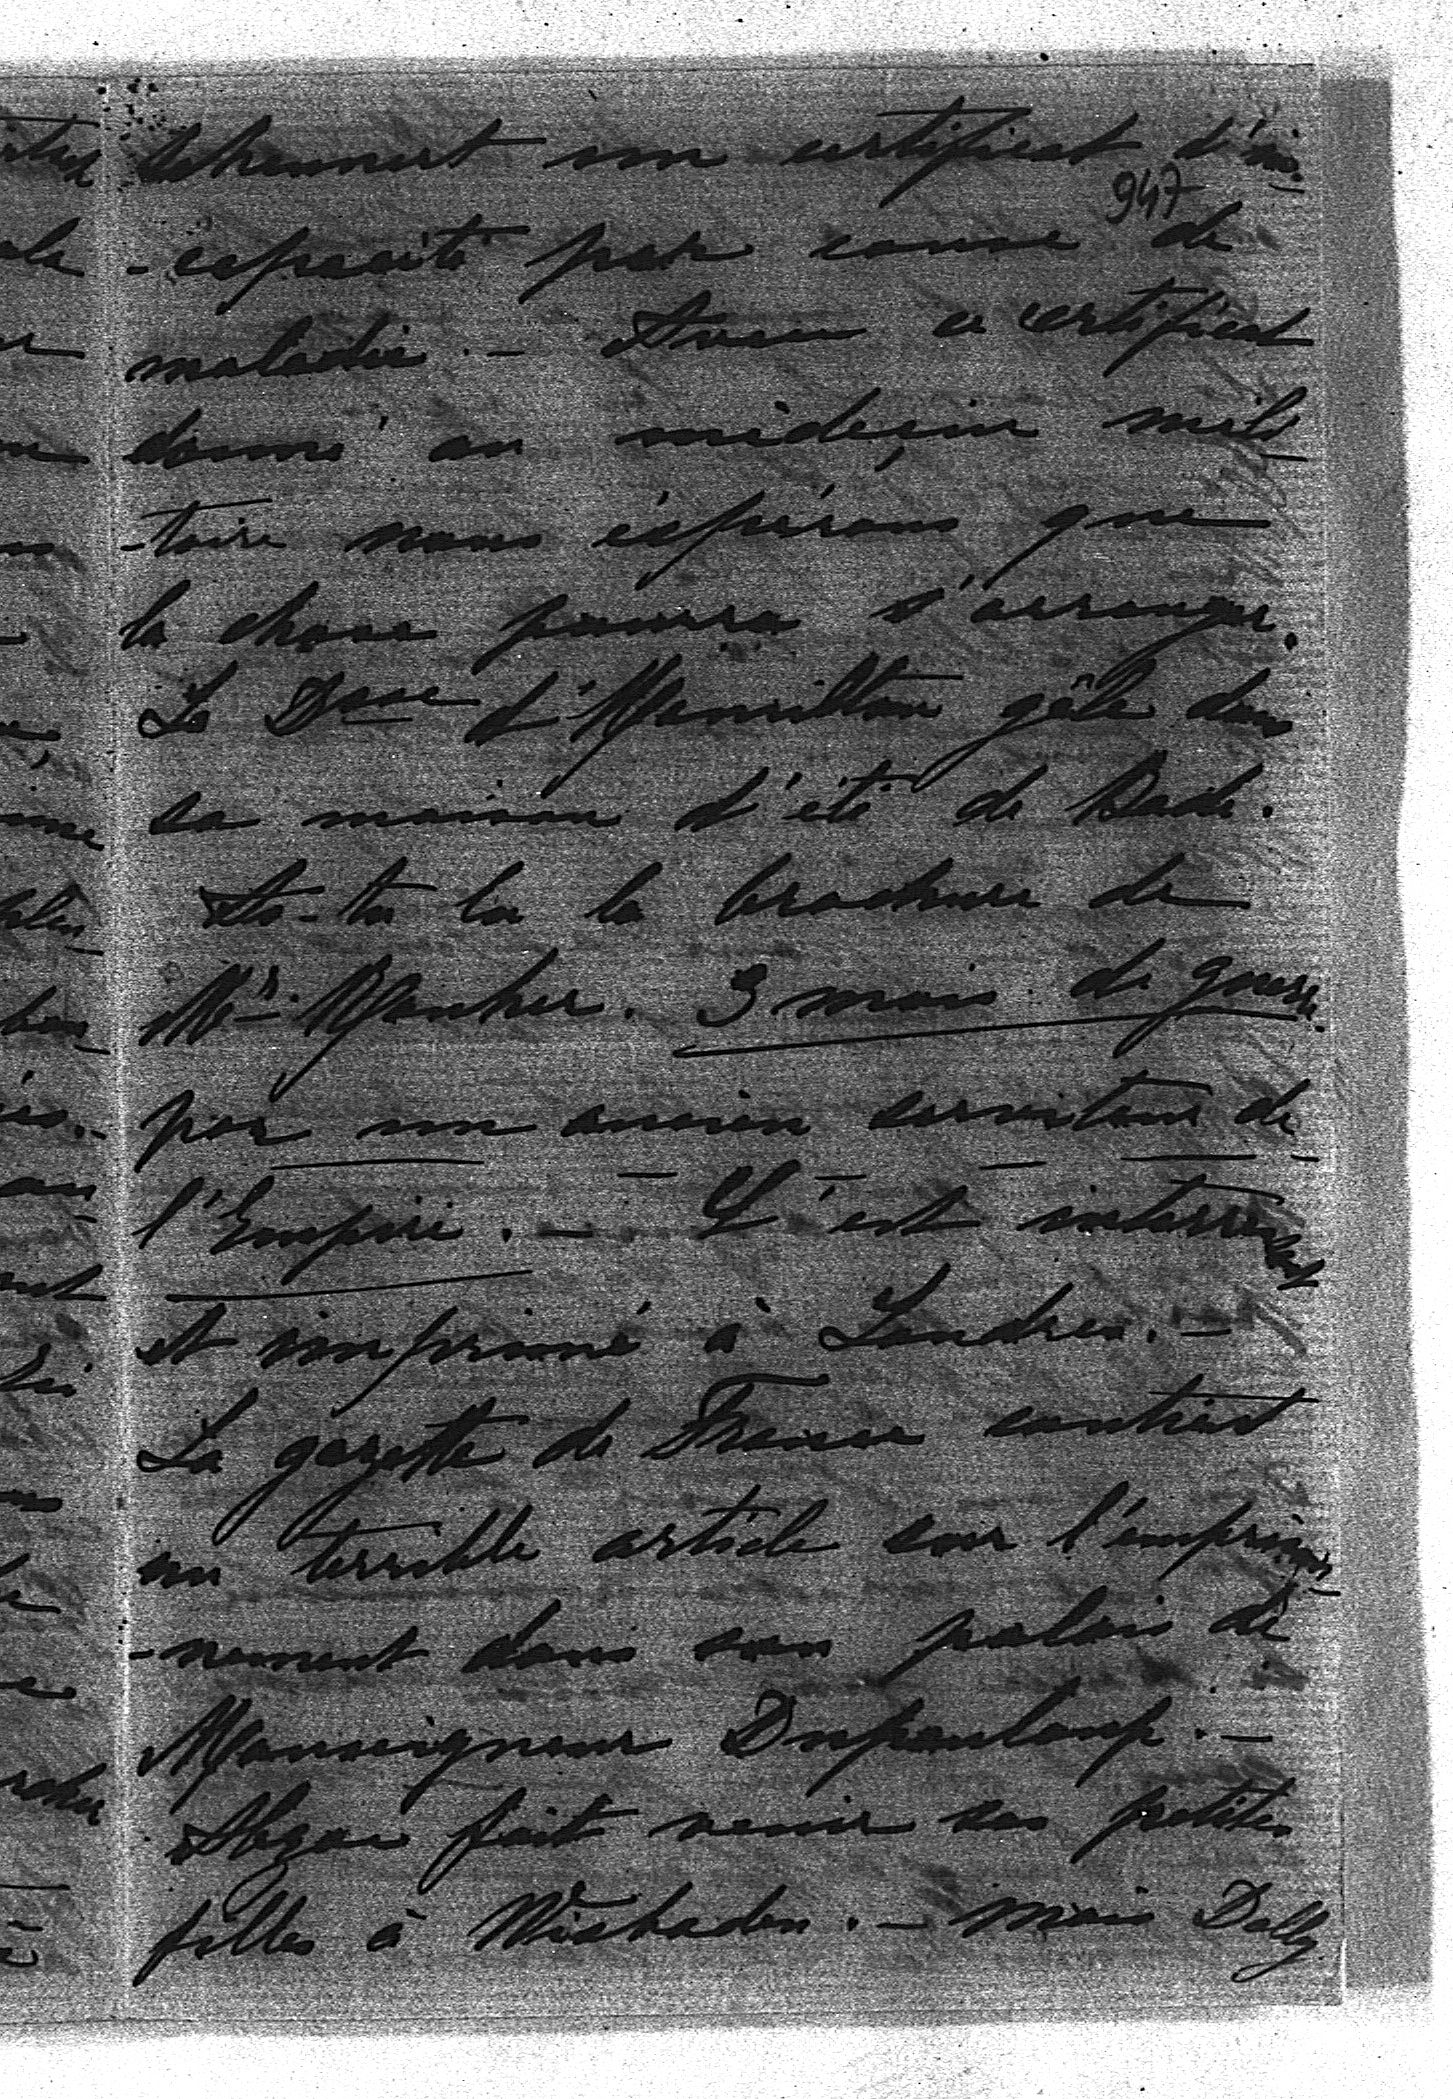 un certificat d'in-
947
-capacité par cause de
maladie. - Avec ce certificat
donné au médecin mili-
-taire nous éspérons que
la chose pourra s'arranger.
La Dsse d'Hamilton gèle dans
sa maison d'été de Bade.
As-tu lu la brochure de
Mr. Rouher. 3 mois de guerre
par un ancien serviteur de
l'Empire. - C'est interressant
et imprimé à Londres. -
La gazette de France contient
un terrible article sur l'emprison-
-nement dans son palais de
Monseigneur Dupanloup. -
fait venir ses petites
filles à Wisbaden. - mais Dolly